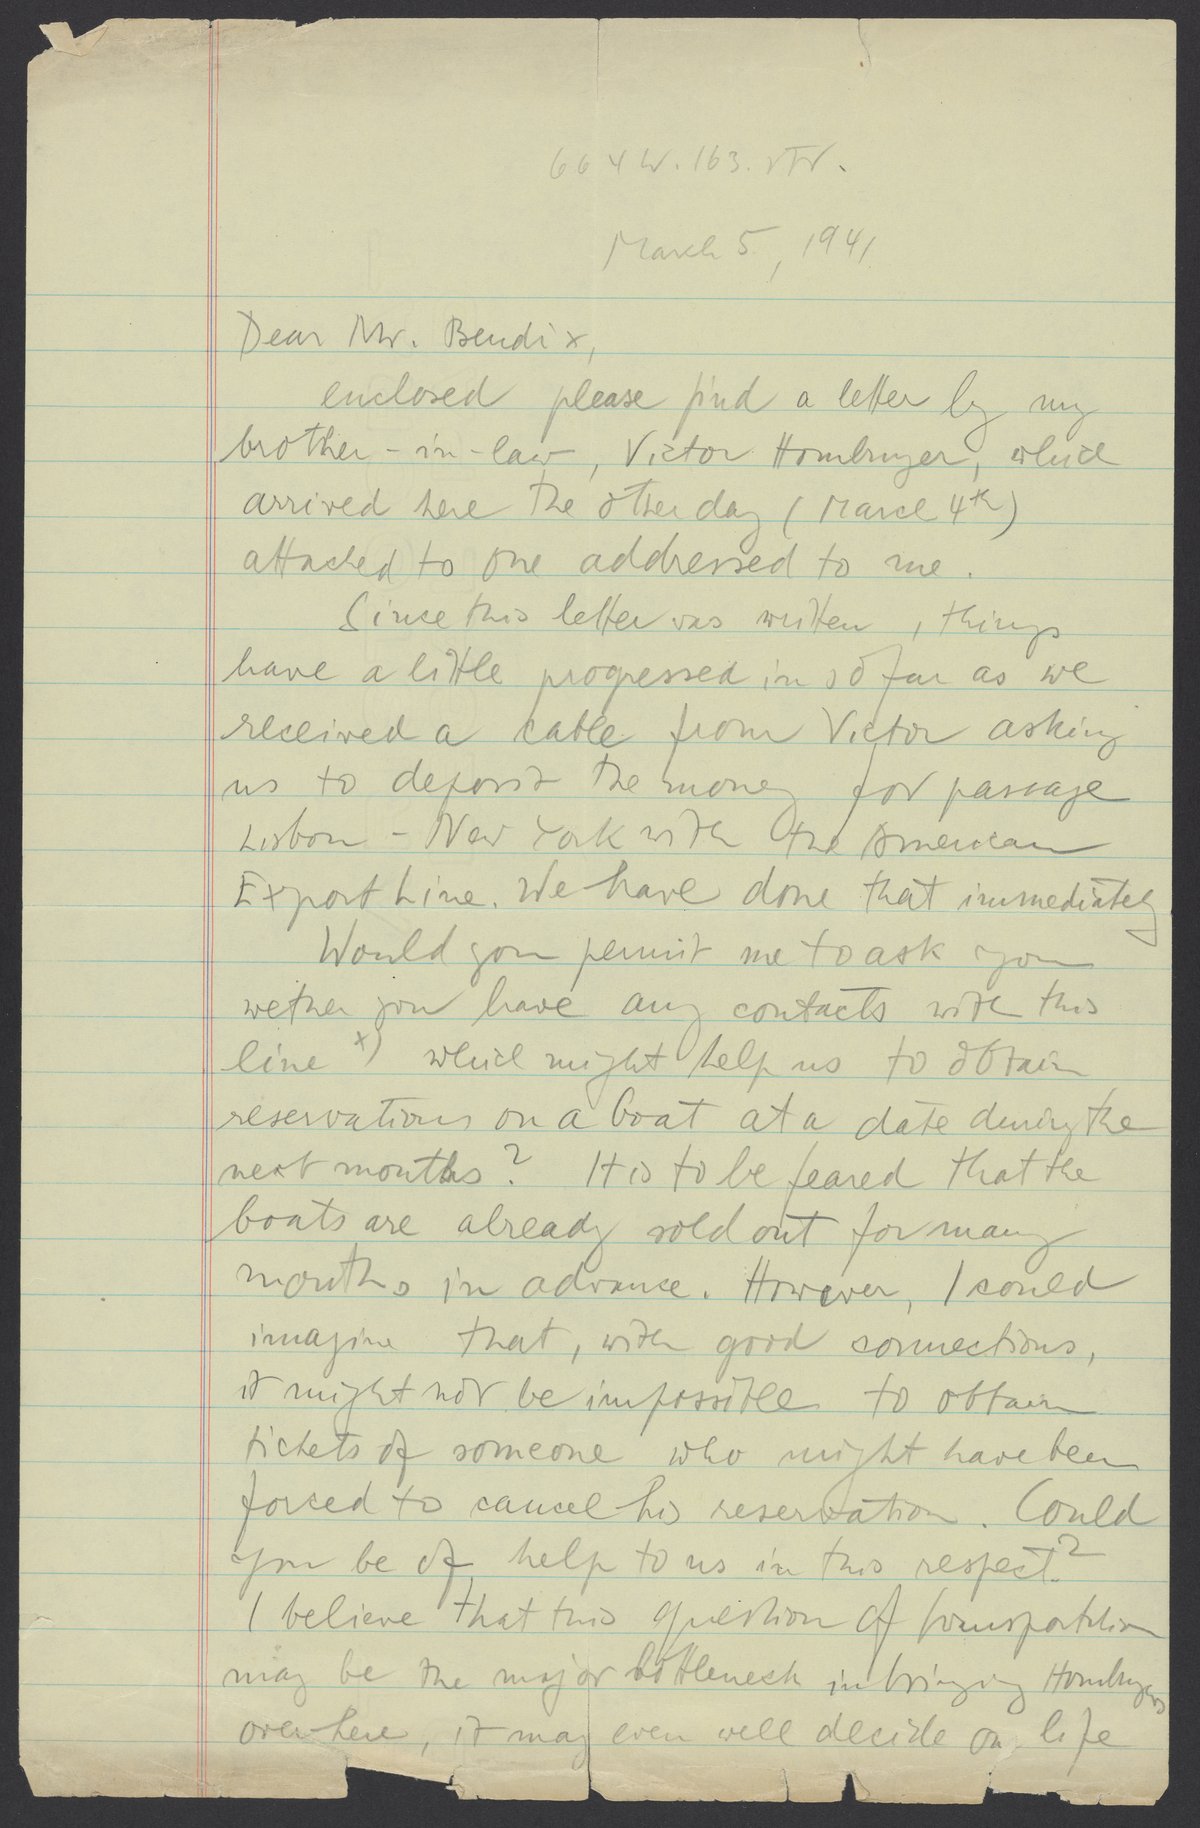 664 W. 163. Str.
March 5, 1941
Dear Mr. Bendix,
enclosed please find a letter by my
brother-in-law, Victor Homburger, which
arrived here the other day (March 4th)
attached to one addressed to me.
Since this letter was written, things
have a little progressed in so far as we
received a cable from Victor asking
us to deposit the money for passage
Lisbon - New York with the American
Export Line. We have done that immediately
Would you permit me to ask you
wether you have any contacts with this
line x) which might help us to obtain
reservations on a boat at a date during the
next months? It is to be feared that the
boats are already sold out for many
months in advance. However, I could
imagine that, with good connections,
it might not be impossible to obtain
tickets of someone who might have been
forced to cancel his reservation. Could
you be of help to us in this respect?
I believe that this question of transportation
may be the major bottleneck in bringing Homburgers
over here, it may even well decide on life